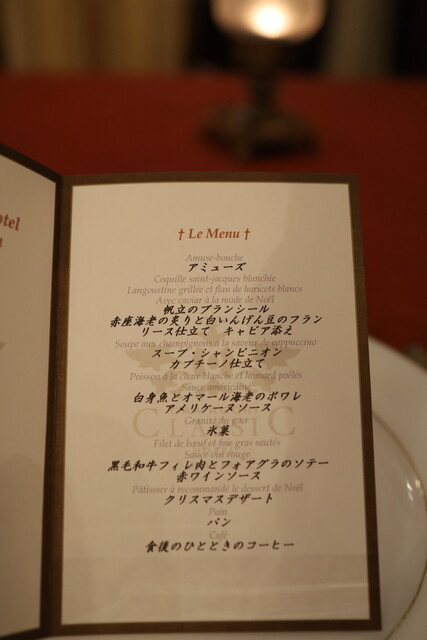 otel
† Le Menu †
Amuse-bouche
アミューズ
Coquille saint-jacques blanchie
Langoustine grillée et flan de haricots blancs
Avec caviar à la mode de Noël
帆立のブランシール
赤座海老の炙りと白いんげん豆のフラン
リース仕立て キャビア添え
Soupe aux champignons a la saveur de cappuccino
スープ・シャンピニオン
カプチーノ仕立て
Poisson à la chair blanche et homard poêlés
Sauce américaine
白身魚とオマール海老のポワレ
アメリケーヌソース
CLASSIC
Granité du jour
氷菓
Filet de bœuf et foie gras sautés
Sauce vin rouge
黒毛和牛フィレ肉とフォアグラのソテー
赤ワインソース
Pâtissier a recommandé le dessert de Noël
クリスマスデザート
Pain
パン
Café
食後のひとときのコーヒー